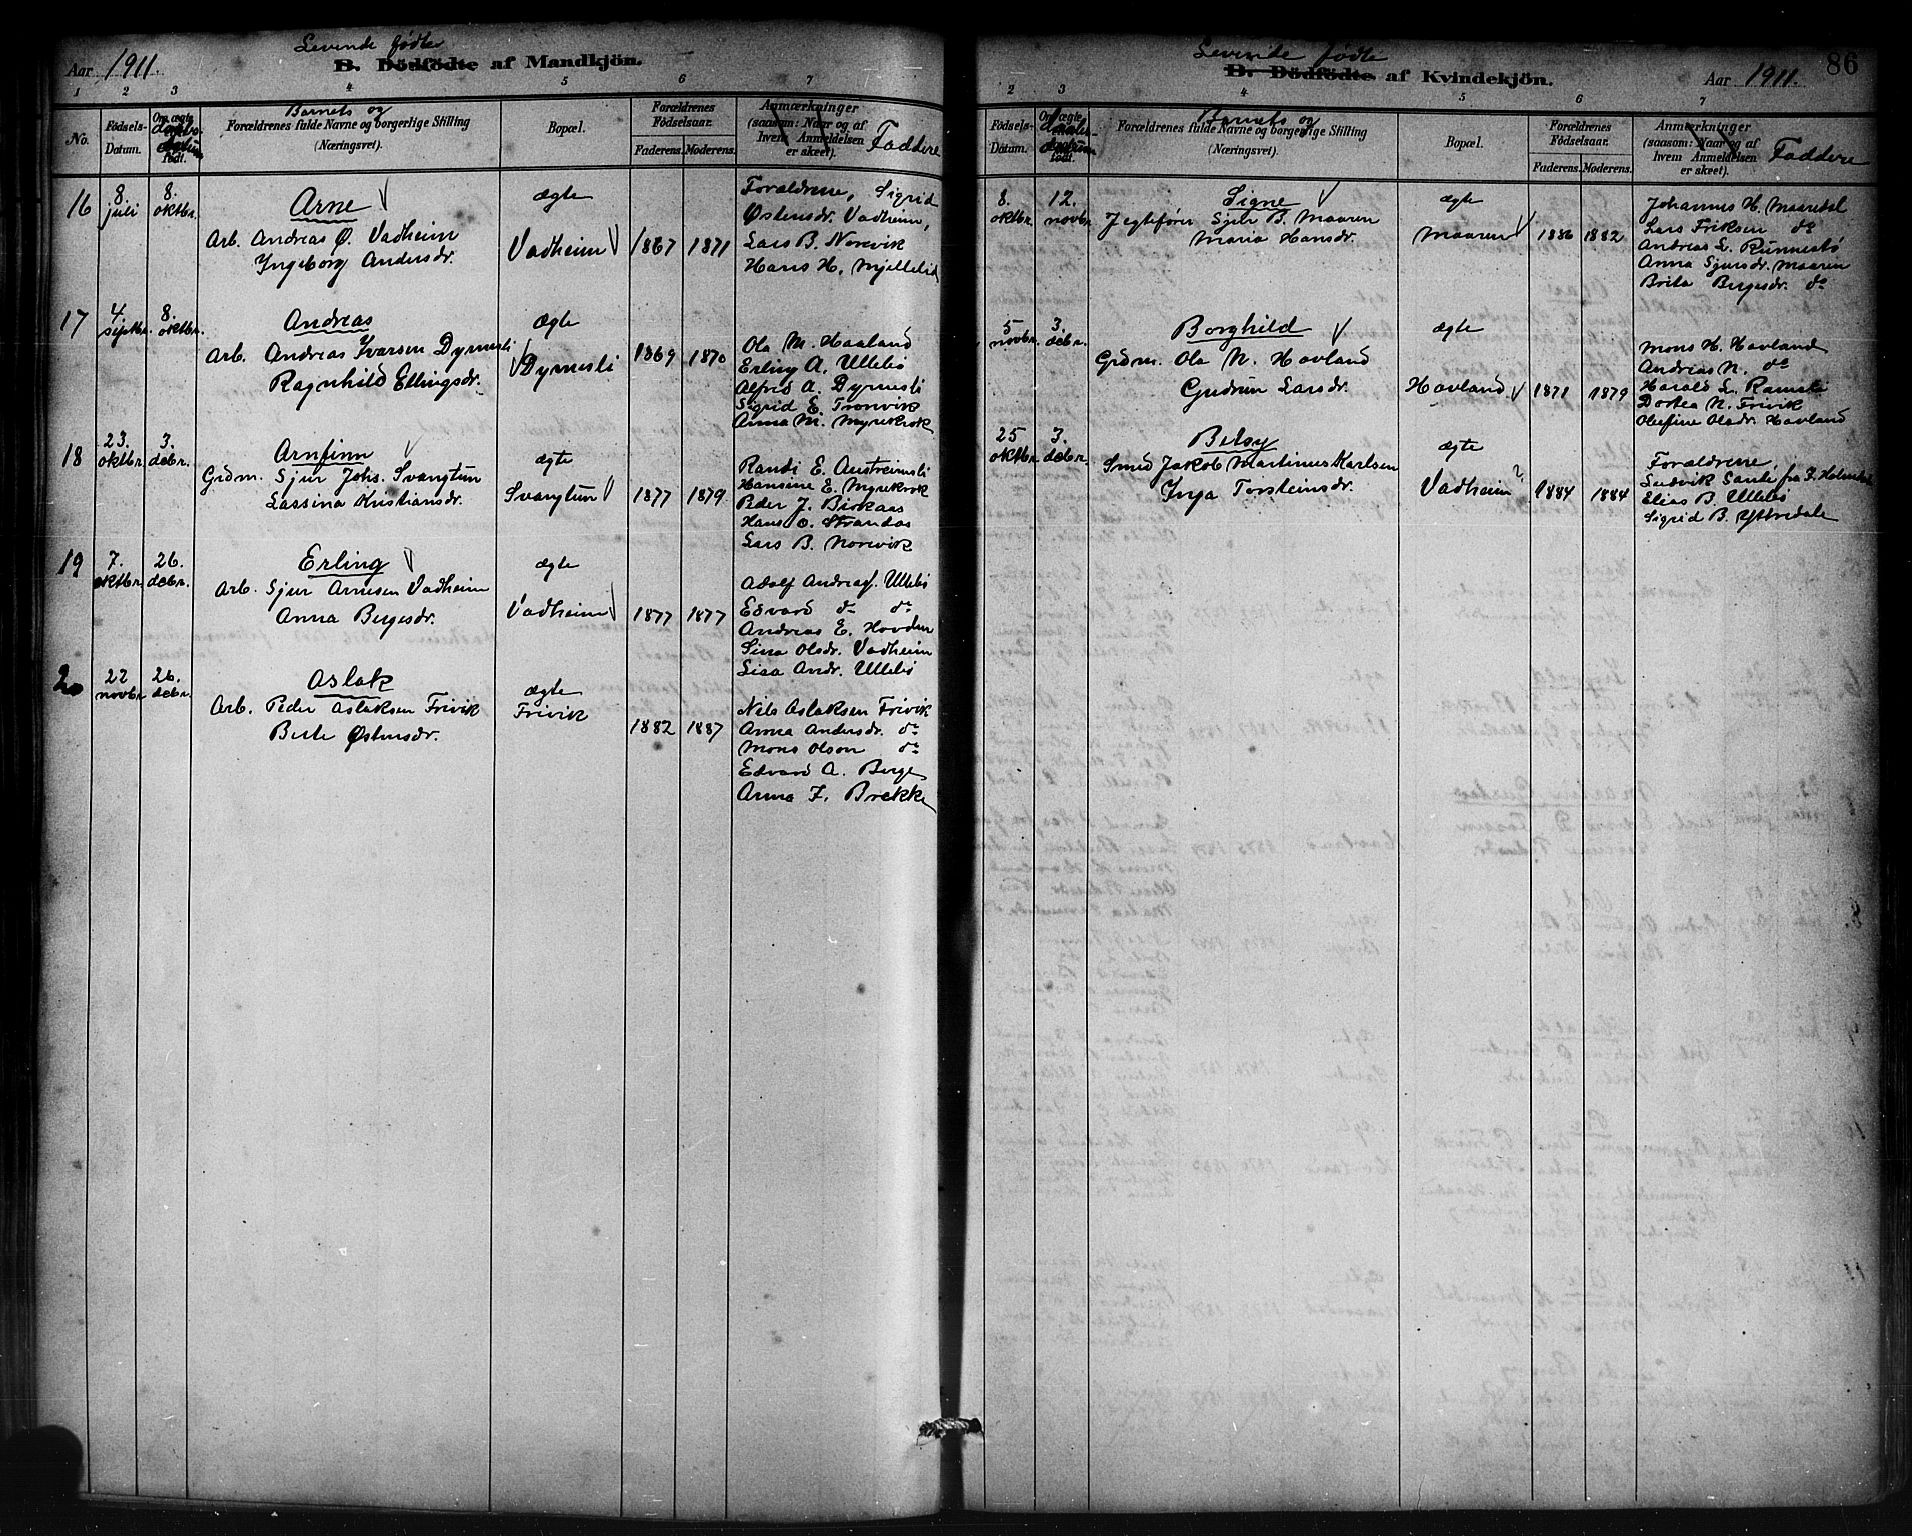 Aar 1911.
Levende fødte
B. Dödfödte af Mandkjön.
1 2 3 4 5 6 7
No.
Födsels-
Datum.
Barnets og
Forældrenes fulde Navne og borgerlige Stilling
(Næringsvei).
Bopæl.
Forældrenes
Födselsaar.
Faderens. Moderens.
Anmærkninger
(saasom: Naar og af
hvem Anmeldelsen
er skeet).
Faddere
16
8.
juli
8.
oktbr.
Arne
Arb. Andreas Ø. Vadheim
Ingeborg Andersdr.
ægte
Vadheim
1867 1871
Forældrene, Sigrid
Østensdr. Vadheim,
Lars B. Norevik
Hans H. Mjellelid
17
4.
septbr.
8.
oktbr.
Andreas
Arb. Andreas Ivarsen Dyrnesli
Ragnhild Ellingsdr.
ægte
Dyrnesli
1869 1870
Ola M. Haaland
Erling A. Ullebø
Alfred A. Dyrnesli
Sigrid E. Tronvik
Anna M. Myrekrok
18
23.
oktbr.
3.
debr.
Arnfinn
Grdm. Sjur Johs. Svangtun
Lassina Kristiansdr.
ægte
Svangtun
1877 1879
Randi E. Austreimsli
Hansine E. Myrekrok
Peder J. Birkaas
Hans O. Strandos
Lars B. Norevik
19
7.
oktbr.
26.
debr.
Erling
Arb. Sjur Arnesen Vadheim
Anna Bergesdr.
ægte
Vadheim
1877 1877
Adolf Andreas. Ullebø
Edvard do do
Andreas E. Hovden
Sina Olsdr. Vadheim
Lisa Andr. Ullebø
20
22
novbr.
26.
debr.
Aslak
Arb. Peder Aslaksen Frivik
Berte Østensdr.
ægte
Frivik
1882 1887
Nils Aslaksen Frivik
Anna Andersdr. do
Mons Olson do
Edvard A. Berge
Anna F. Brekke
86
Levende fødte
B. Dödfödte af Kvindekjön.
Aar 1911.
2 3 4 5 6 7
Födsels-
Datum.
Barnets og
Forældrenes fulde Navne og borgerlige Stilling
(Næringsvei).
Bopæl.
Forældrenes
Födselsaar.
Faderens. Moderens.
Anmærkninger
(saasom: Naar og af
hvem Anmeldelsen
er skeet).
Faddere
8.
oktbr.
12.
novbr.
Signe
Jegtefører Sjur B. Maaren
Maria Hansdr.
ægte
Maaren
1886 1882
Johannes H. Maaredal
Lars Eriksen do
Andreas L. Runnestø
Anna Sjursdr. Maaren
Brita Bergesdr. do
5
novbr.
3.
debr.
Borghild
Grdm. Ola N. Hovland
Gudrun Larsdr.
ægte
Hovland
1871 1879
Mons H. Hovland
Andreas N. do
Harald L. Ramsli
Dortea N. Frivik
Olufine Olsdr. Hovland
25
oktbr.
3.
debr.
Betsy
Smed Jakob Martinus Karlsen
Inga Torsteinsdr.
ægte
Vadheim?
1884 1884
Forældrene
Ludvik Sande fra
Elias B. Ullebø
Sigrid B. Ytredale